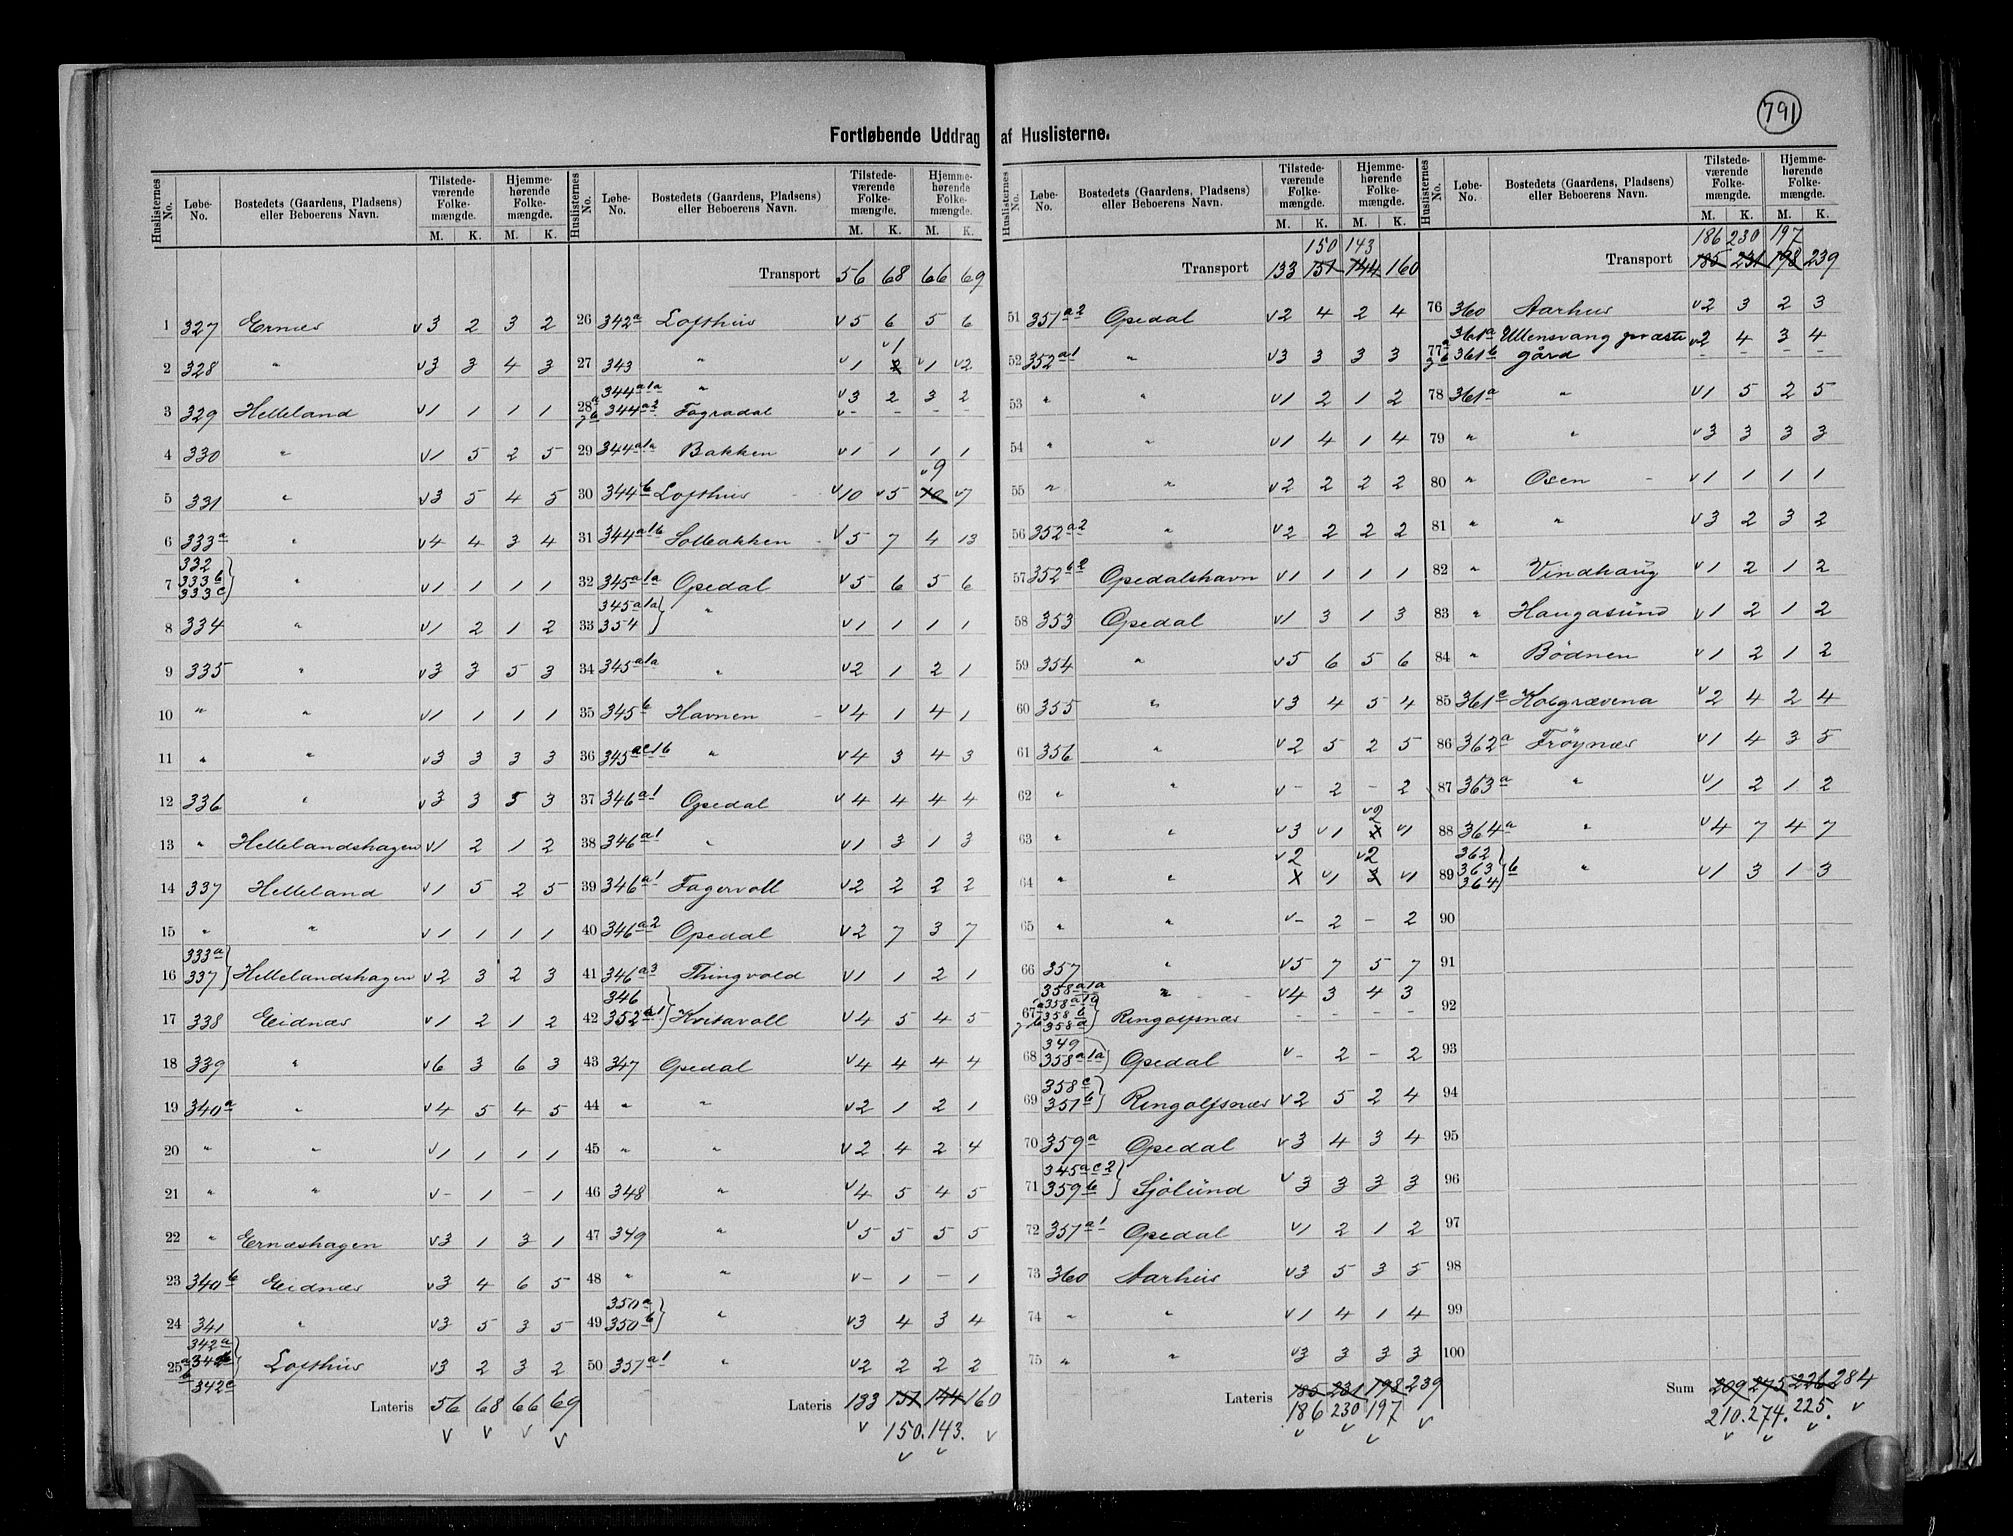 791
Fortløbende Uddrag af Huslisterne.
Huslisternes No. Løbe-No. Bostedets (Gaardens, Pladsens) eller Beboerens Navn. Tilstedeværende Folkemængde. M. K. Hjemmehørende Folkemængde. M. K.
1 327 Ernæs v3 2 3 2
2 328 " v3 3 4 3
3 329 Helleland v1 1 1 1
4 330 " v1 5 2 5
5 331 " v3 5 4 5
6 333a " v4 4 3 4
7 332 333b 333c } " v1 1 1 1
8 334 " v1 2 1 2
9 335 " v3 3 5 3
10 " " v1 1 1 1
11 " " v3 3 3 3
12 336 " v3 3 5 3
13 " Hellelandshagen v1 2 1 2
14 337 Helleland v1 5 2 5
15 " " v1 1 1 1
16 333a 337 } Hellelandshagen v2 3 2 3
17 338 Eidnæs v1 2 1 2
18 339 " v6 3 6 3
19 340a " v4 5 4 5
20 " " v1 1 1 1
21 " " v- 1 - 1
22 " Ernæshagen v3 1 3 1
23 340b Eidnæs v3 4 6 5
24 341 " v3 5 3 5
25 a b 342a 342b 342c } Lofthus v3 2 3 2
Lateris 56 68 66 69
v v v v
Huslisternes No. Løbe-No. Bostedets (Gaardens, Pladsens) eller Beboerens Navn. Tilstedeværende Folkemængde. M. K. Hjemmehørende Folkemængde. M. K.
Transport 56 68 66 69
26 342a Lofthus v5 6 5 6
27 343 " v1 v1 v1 v2
28 a b 344a1a " v3 2 3 2
344a2 Fagradal v- - - -
29 344a1a Bakken v1 1 1 1
30 344b Lofthus v10 v5 10 v9 v7
31 344a1b Solbakken v5 7 4 13
32 345a1a Opedal v5 6 5 6
33 345a1a 354 } " v1 1 1 1
34 345a1a " v2 1 2 1
35 345b Havnen v4 1 4 1
36 345ac1b " v4 3 4 3
37 346a1 Opedal v4 4 4 4
38 346a1 " v1 3 1 3
39 346a1 Fagervoll v2 2 2 2
40 346a2 Opedal v2 7 3 7
41 346a3 Thingvold v1 1 2 1
42 346 352a1 } Kvitavoll v4 5 4 5
43 347 Opedal v4 4 4 4
44 " " v2 1 2 1
45 " " v2 4 2 4
46 348 " v4 5 4 5
47 349 " v5 5 5 5
48 " " v- 1 - 1
49 350a 350b } " v3 4 3 4
50 357a1 " v2 2 2 2
Lateris 133 151 144 160
v 150. 143. v
v v
Huslisternes No. Løbe-No. Bostedets (Gaardens, Pladsens) eller Beboerens Navn. Tilstedeværende Folkemængde. M. K. Hjemmehørende Folkemængde. M. K.
150 143
Transport 133 151 144 160
51 351a2 Opedal v2 4 2 4
52 352a1 " v3 3 3 3
53 " " v1 2 1 2
54 " " v1 4 1 4
55 " " v2 2 2 2
56 352a2 " v2 2 2 2
57 352b2 Opedalshavn v1 1 1 1
58 353 Opedal v1 3 1 3
59 354 " v5 6 5 6
60 355 " v3 4 5 4
61 356 " v2 5 2 5
62 " " v- 2 - 2
63 " " v3 v1 v2 v1
64 " " v2 v1 v2 v1
65 " " v- 2 - 2
66 357 " v5 7 5 7
67 358a1a " v4 3 4 3
358a1a 358b 358d } Ringolfsnæs - - - -
68 349 358a1a } Opedal v- 2 - 2
69 358c 351b } Ringolfsnæs v2 5 2 4
70 359a Opedal v3 4 3 4
71 345ac2 359b } Sjölund v3 3 3 3
72 357a1 Opedal v1 2 1 2
73 360 Aarhus v3 5 3 5
74 " " v1 4 1 4
75 " " v3 3 3 3
Lateris 185 231 198 239
186 230 197 v
v v v
Huslisternes No. Løbe-No. Bostedets (Gaardens, Pladsens) eller Beboerens Navn. Tilstedeværende Folkemængde. M. K. Hjemmehørende Folkemængde. M. K.
186 230 197
Transport 185 231 198 239
76 360 Aarhus v2 3 2 3
77 a b 361a Ullensvang præste v2 4 3 4
361b gård - - - -
78 361a " v1 5 2 5
79 " " v3 3 3 3
80 " Osen v1 1 1 1
81 " " v3 2 3 2
82 " Vindhaug v1 2 1 2
83 " Haugasund v1 2 1 2
84 " Bödnen v1 2 1 2
85 361c Kolgrævena v2 4 2 4
86 362a Frøynæs v1 4 3 5
87 363a " v1 2 1 2
88 364a " v4 7 4 7
89 362 363 364 } b " v1 3 1 3
90
91
92
93
94
95
96
97
98
99
100
Sum 209 275 226 284
210. 274. 225. v
v v v